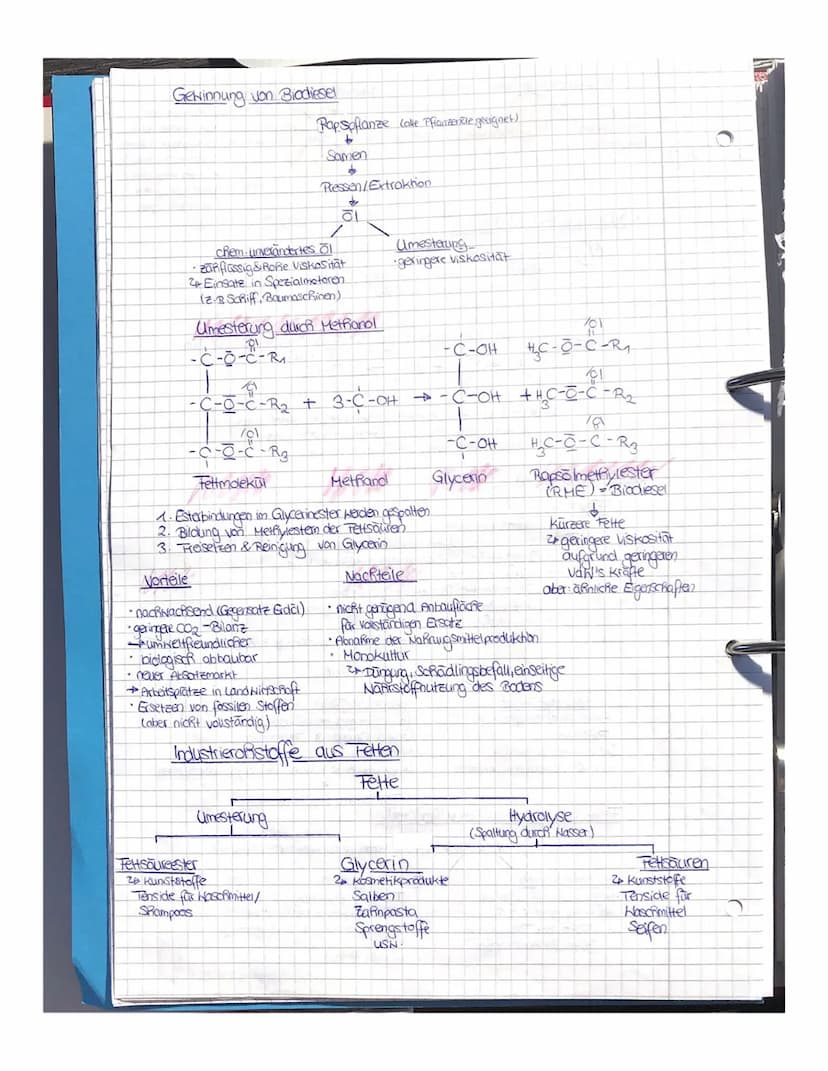 Gewinnung von Biodiesel
Rapspflanze (alle Pflanzenöle geeignet)
↓
Samen
↓
Pressen/Extraktion
↓
Öl
chem. unverändertes Öl
· zähflüssig & hohe Viskosität
↳ Einsatz in Spezialmotoren
(z.B Schiff, Baumaschinen)
Umesterung
· geringere Viskosität
Umesterung durch Methanol
|O|
-C-O-C-R1
|O|
-C-O-C-R2 + 3-C-OH → -C-OH + H3C-O-C-R2
|O|
-C-O-C-R3
-C-OH H3C-O-C-R1
-C-OH H3C-O-C-R3
Fettmolekül Methanol Glycerin Rapsölmethylester
(RME) = Biodiesel
↓
kürzere Fette
↳ geringere Viskosität
aufgrund geringeren
VdW's Kräfte
aber: ähnliche Eigenschaften
1. Esterbindungen im Glycerinester werden gespalten
2. Bildung von Methylestern der Fettsäuren
3. Freisetzen & Reinigung von Glycerin
Vorteile
· nachwachsend (Gegensatz Erdöl)
· geringere CO2-Bilanz
→ umweltfreundlicher
· biologisch abbaubar
· neuer Absatzmarkt
→ Arbeitsplätze in Landwirtschaft
· Ersetzen von fossilen Stoffen
(aber nicht vollständig)
Nachteile
· nicht genügend Anbaufläche
für vollständigen Ersatz
· Abnahme der Nahrungsmittelproduktion
· Monokultur
↳ Düngung, Schädlingsbefall, einseitige
Nährstoffnutzung des Bodens
Industrierohstoffe aus Fetten
Fette
Umesterung Hydrolyse
(Spaltung durch Wasser)
Fettsäureester
↳ Kunststoffe
Tenside für Waschmittel/
Shampoos
Glycerin
↳ Kosmetikprodukte
Salben
Zahnpasta
Sprengstoffe
usw.
Fettsäuren
↳ Kunststoffe
Tenside für
Waschmittel
Seifen